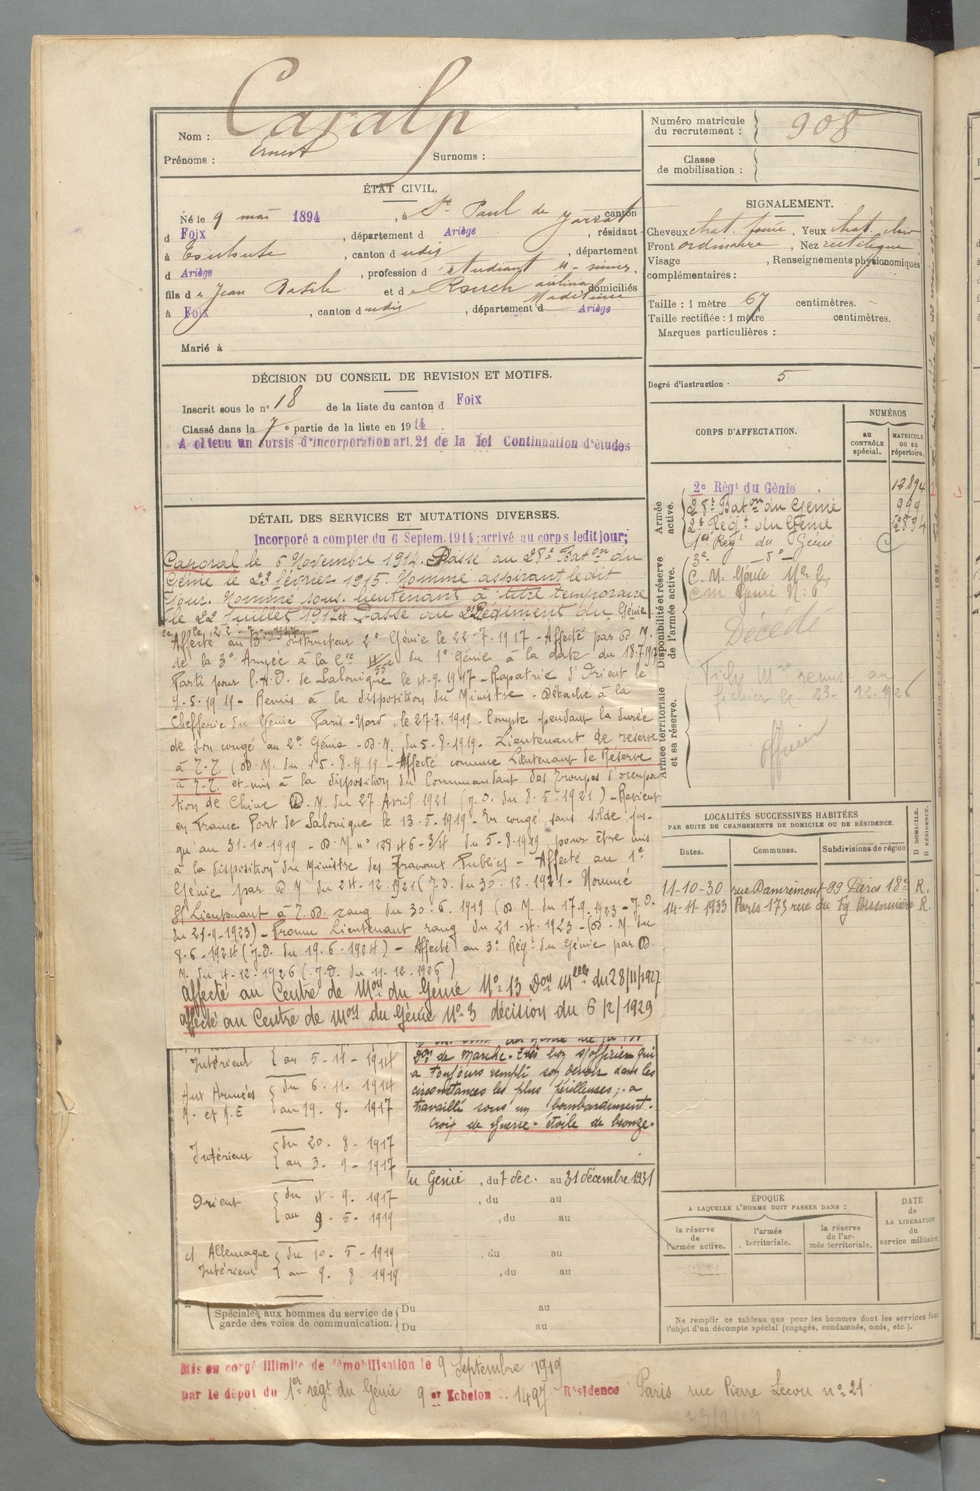 Nom : Cazalp
Prénoms : Ernest Surnoms :
Numéro matricule du recrutement : 908
Classe de mobilisation :
ÉTAT CIVIL.
Né le 9 mai 1894, à St Paul de Jarrat canton
d Foix, département d Ariège, résidant
à Esclubute, canton d udis, département
d Ariège, profession d étudiant
fils de Jean Basile et de Rouch domiciliés
à Foix, canton d udis, département d Ariège
Marié à
SIGNALEMENT.
Cheveux chat. foncé, Yeux chat. clair
Front ordinaire, Nez rectiligne
Visage , Renseignements physionomiques
complémentaires :
Taille : 1 mètre 67 centimètres.
Taille rectifiée : 1 mètre centimètres.
Marques particulières :
DÉCISION DU CONSEIL DE REVISION ET MOTIFS.
Inscrit sous le n° 18 de la liste du canton d Foix
Classé dans la 7e partie de la liste en 1914.
A obtenu un sursis d'incorporation art. 21 de la loi Continuation d'études
Degré d'instruction · 5
CORPS D'AFFECTATION.
NUMÉROS
au CONTRÔLE spécial.
MATRICULE ou au répertoire.
Armée active.
2e Régt du Génie 12894
28e Baton du Génie 999
2e Régt du Génie
1er Régt du Génie
Disponibilité et réserve de l'armée active.
3e _ do _
C. M. Génie No 2
Cm Génie No 6
Décédé
Armée territoriale et sa réserve.
Fiche Mle remis au
fichier le 23-12-1926
Officier
DÉTAIL DES SERVICES ET MUTATIONS DIVERSES.
Incorporé a compter du 6 Septem. 1914; arrivé au corps ledit jour;
Caporal le 5 Novembre 1914. Passé au 28e Baton du
Génie le 22 février 1915. Nommé aspirant ledit
jour. Nommé sous. lieutenant à titre temporaire
le 22 juillet 1917 Passé au 2e Régiment du Génie
Affecté au Bon Instructeur 2e Génie le 22-7-1917 - Affecté par D. M.
de la 3e Armée à la Cie du 1er Génie à la date du 18.7.1917
Parti pour l'A.O. de Salonique le 4-9-1917 - Rapatrié d'Orient le
9-5-1919 - Remis à la disposition du Ministre - Détaché à la
Chefferie du Génie Paris-Nord, le 27.7.1919 - Compte pendant la durée
de son congé au 2e Génie - D.M. du 5-8-1919 - Lieutenant de reserve
à T.T. (D.M. du 15-8-1919 - Affecté comme Lieutenant de Réserve
à T.T. et mis à la disposition du Commandant des troupes d'occupa
tion de Chine D.M. du 27 Avril 1921 (J.O. du 8-5-1921) - Revient
en France Port de Salonique le 13-5-1919 - En congé sans solde jus-
qu'au 31-10-1919 - D.M. du 5-8-1919, pour être mis
à la disposition du Ministre des Travaux Publics - Affecté au 1er
Génie par D.M. du 24-12-1921 (J.O. du 30-12-1921 - Nommé
S/Lieutenant à T.D. rang du 30-6-1919 (D.M. du 17-9-1923 - J.O.
du 21-9-1923) - Promu Lieutenant rang du 21-4-1923 - (D.M. du
8-6-1924 (J.O. du 19-6-1924) - Affecté au 3e Régt du Génie par D.
M. du 4-12-1926 (J.O. du 11-12-1926)
Affecté au Centre de Mon du Génie No 13 Don Mlle du 28/11/1927
affecté au Centre de Mon du Génie No 3 décision du 6/2/1929
LOCALITÉS SUCCESSIVES HABITÉES
PAR SUITE DE CHANGEMENTS DE DOMICILE OU DE RÉSIDENCE.
Dates. Communes. Subdivisions de région. D. DOMICILE. R. RÉSIDENCE.
11-10-30 rue Damrémont 99 Paris 18e R.
14-11-1933 Paris 175 rue du Fg Poissonnière R.
Intérieur { au 5-11-1914
Aux Armées { du 6.11.1914
{ au 19.8.1917
Intérieur { du 20.8-1917
{ au 3.9-1917
Orient { du 4-9.1917
{ au 9.5-1919
et Allemagne { du 10.5-1919
Intérieur { au 9.8.1919
Spéciales aux hommes du service de garde des voies de communication.
Don de marche. Très bon s/officier qui
a toujours rempli son devoir dans les
circonstances les plus périlleuses; a
travaillé sous un bombardement.
Croix de guerre - étoile de bronze.
du Génie, du 7 dec. au 31 décembre 1931
, du au
, du au
, du au
, du au
Du au
Du au
ÉPOQUE
A LAQUELLE L'HOMME DOIT PASSER DANS :
la réserve de l'armée active.
l'armée territoriale.
la réserve de l'armée territoriale.
DATE de LA LIBÉRATION du service militaire.
Ne remplir ce tableau que pour les hommes dont les services font
l'objet d'un décompte spécial (engagés, condamnés, omis, etc.).
Mis en congé illimité de démobilisation le 9 Septembre 1919
par le dépôt du 1er régt du Génie 9e Echelon 1497 Résidence Paris rue Pierre Lescou no 21